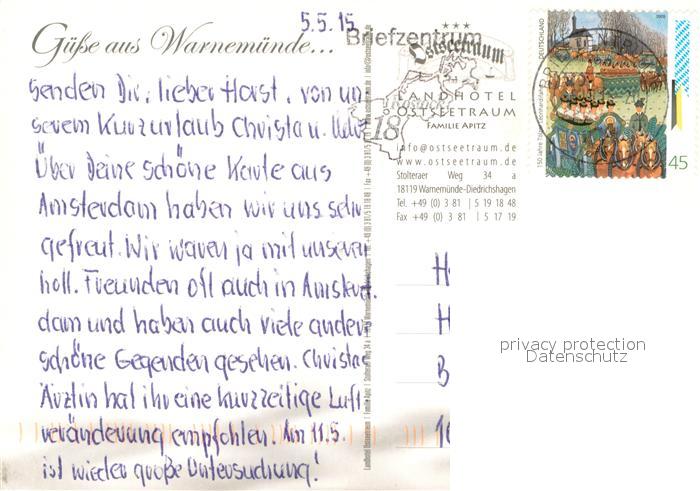 5.5.15
Güße aus Warnemünde...
senden Dir, lieber Horst, von un
serem Kurzurlaub Christa u.
Über Deine schöne Karte aus
Amsterdam haben wir uns sehr
gefreut. Wir waren ja mit unseren
holl. Freunden oft auch in Amster
dam und haben auch viele andere
schöne Gegenden gesehen. Christas
Ärztin hat ihr eine kurzzeitige Luft
veränderung empfohlen. Am 11.5.
ist wieder große Untersuchung!
Briefzentrum
18
Ostseetraum
LANDHOTEL
OSTSEETRAUM
FAMILIE APITZ
info@ostseetraum.de
www.ostseetraum.de
Stolteraer Weg 34 a
18119 Warnemünde-Diedrichshagen
Tel. +49 (0) 3 81 | 5 19 18 48
Fax +49 (0) 3 81 | 5 17 19
DEUTSCHLAND
2005
45
H
H
B
privacy protection
Datenschutz